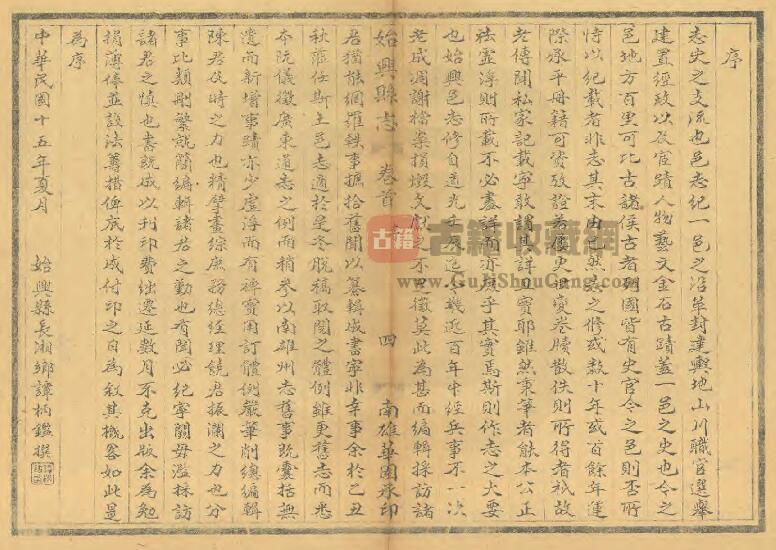 序
志史之支流也邑志紀一邑之沿革封建輿地山川職官選舉
建置經政以及宦蹟人物藝文金石古蹟蓋一邑之史也今之
邑地方百里可比古諸侯古者列國皆有史官今之邑則否所
恃以紀載者非志其末由已然志之修或數十年或百餘年運
際承平冊籍可資攷證若屢更世變卷牘散佚則所得者祇故
老傳聞私家記載寧敢謂其詳且實耶雖然秉筆者能本公正
祛靈浮則所載不必盡詳而亦庶乎其實焉斯則作志之大要
也始興邑志修自道光壬辰迄今幾近百年中經兵事不一次
老成凋謝檔案損燬文獻之不足徵莫此為甚而編輯採訪諸
始興縣志 卷首 四 南雄華國承印
君猶能網羅軼事摭拾舊聞以纂輯成書寧非幸事余於乙丑
秋蒞任斯土邑志適於是冬脫稿取閱之體例雖更舊志而悉
本阮儀徵廣東通志之例而稍參以南雄州志舊事既囊括無
遺而新增事蹟亦少虛浮而有裨實用訂體例嚴筆削總編輯
陳君及時之力也精擘畫綜庶務總經理饒君振瀾之力也分
事比類刪繁就簡編輯諸君之勤也有聞必紀寧闕毋濫採訪
諸君之慎也書既成以刊印費絀遷延數月不克出版余為勉
捐薄俸並設法籌措俾底於成付印之日為敘其概畧如此是
為序
中華民國十五年夏月 始興縣長湘鄉譚柄鑑撰
古籍
古籍收藏网
www.GuJiShouCang.com